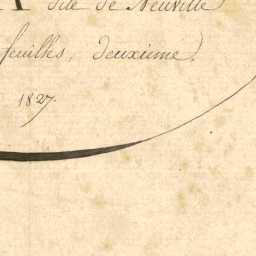 A dite de Neuville
feuilles, deuxième.
1827.